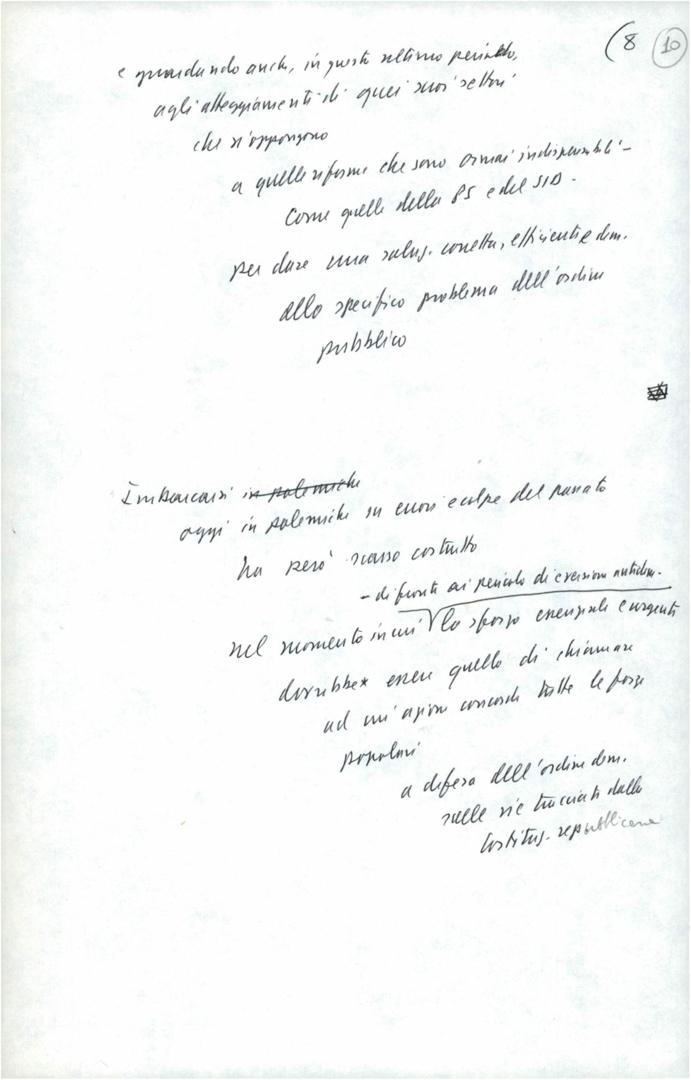 (8 10
e guardando anche, in questo ultimo periodo,
agli atteggiamenti di quei suoi settori
che si oppongono
a quelle riforme che sono ormai indispensabili -
come quelle della PS e del SID -
per dare una soluz. corretta, efficiente e dem.
allo specifico problema dell'ordine
pubblico
Imbarcarsi in polemiche
oggi in polemiche su errori e colpe del passato
ha però scarso costrutto
- di fronte ai pericoli di eversione antidem. -
nel momento in cui lo sforzo essenziale e urgente
dovrebbe essere quello di chiamare
ad un'azione concorde tutte le forze
popolari
a difesa dell'ordine dem.
sulle vie tracciate dalla
Costituz. repubblicana